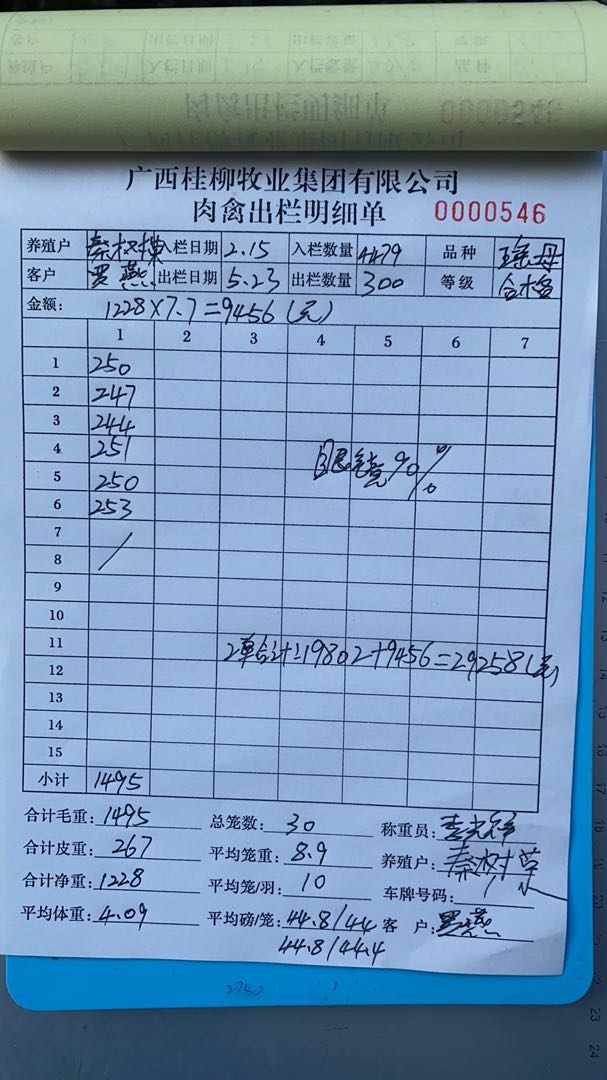 广西桂柳牧业集团有限公司
肉禽出栏明细单 0000546
养殖户 入栏日期 2.15 入栏数量 4479 品种 瑶母
客户 罗燕 出栏日期 5.23 出栏数量 300 等级 合格
金额: 1228×7.7=9456(元)
1 2 3 4 5 6 7
1 250
2 247
3 244
4 251
5 250
6 253
7 /
8
9
10
11 2单合计:19802+9456=29258(元)
12
13
14
15
小计 1495
合计毛重: 1495 总笼数: 30 称重员:
合计皮重: 267 平均笼重: 8.9 养殖户: 秦树
合计净重: 1228 平均笼/羽: 10 车牌号码:
平均体重: 4.09 平均磅/笼: 44.8/44 客 户: 罗燕
44.8/44.4